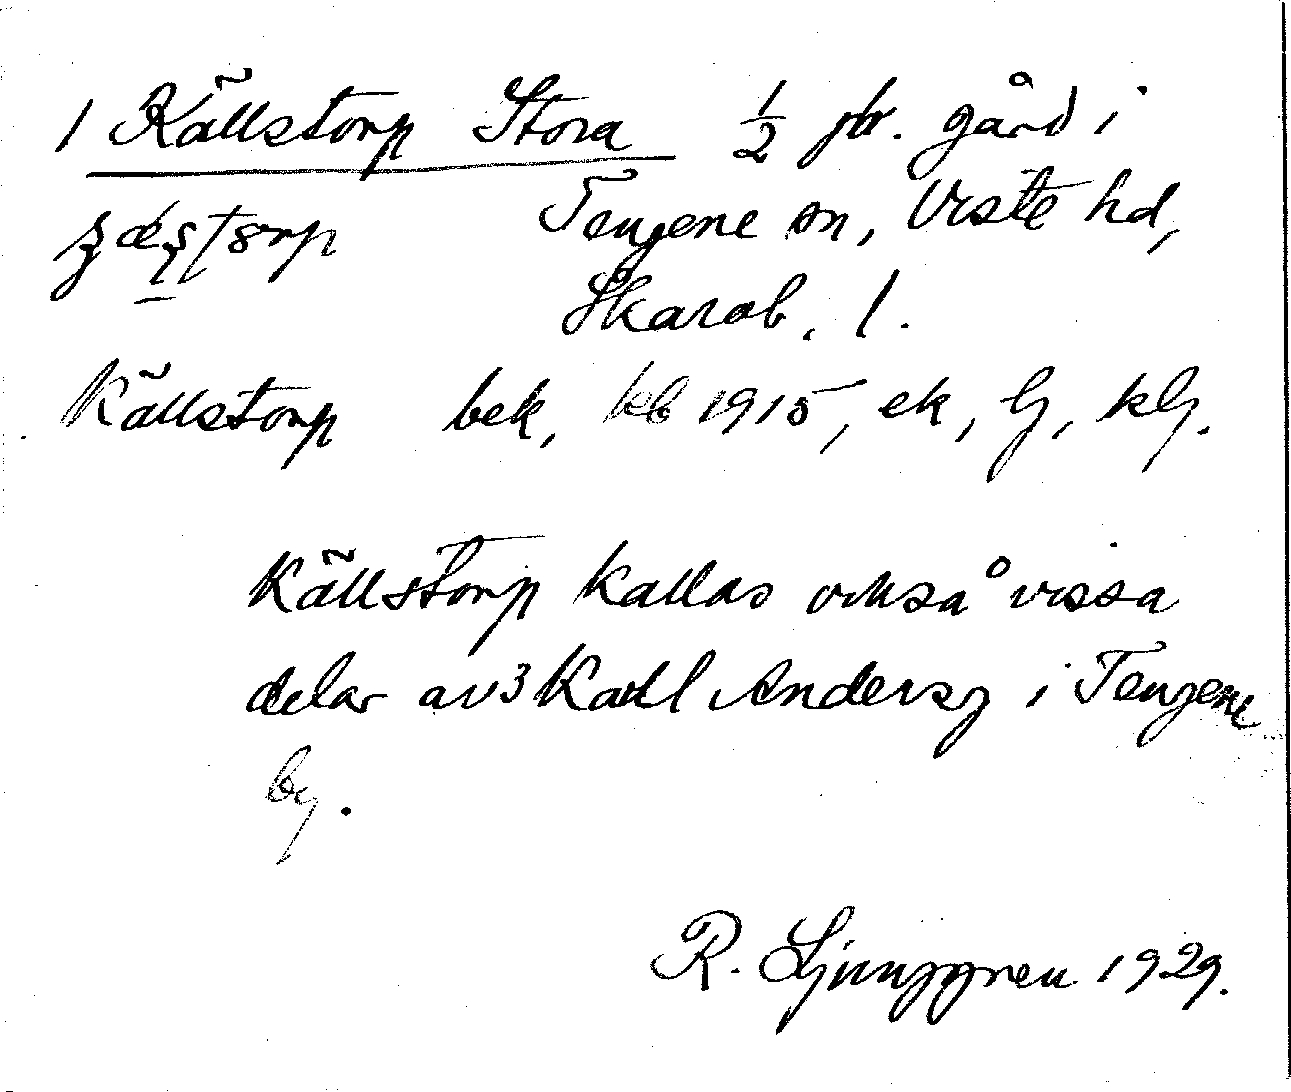 1 Källstorp Stora 1/2 jbr. gård i
Tengene sn, Viste hd,
Skarab. l.
Källstorp bek, kb 1915, ek, lj, klj.
Källstorp kallas också vissa
delar av 3 Karl Anders g i Tengene
by.
R. Ljunggren 1929.